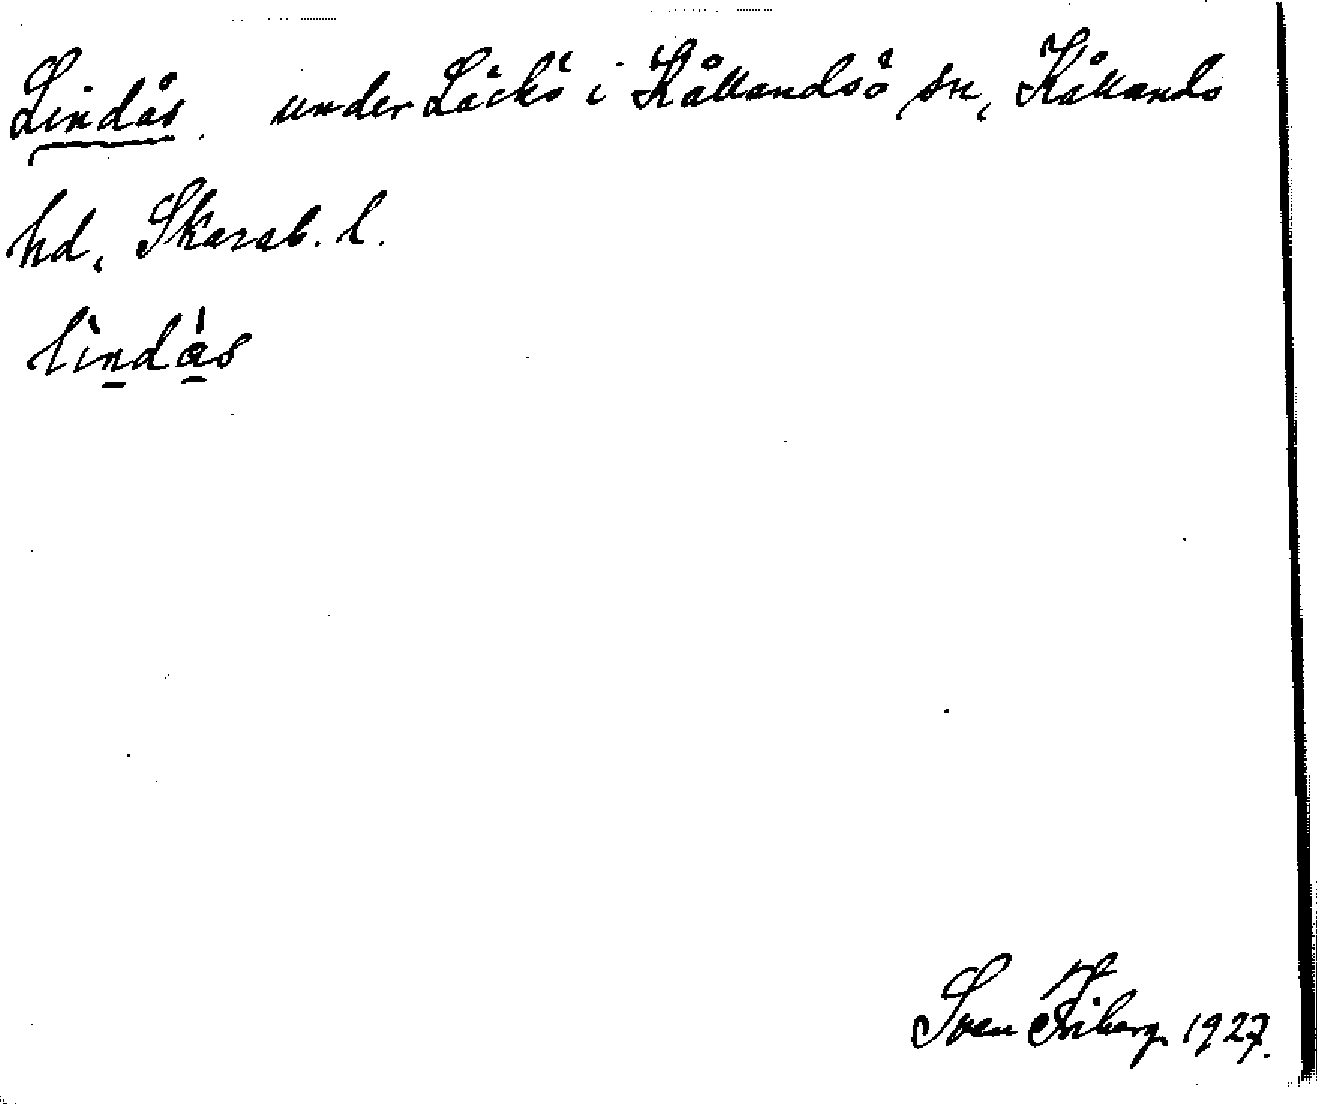 Lindås. under Läckö i Kållandsö sn, Kållands
hd, Skarab. l.
lìndás
Sven Friberg 1927.